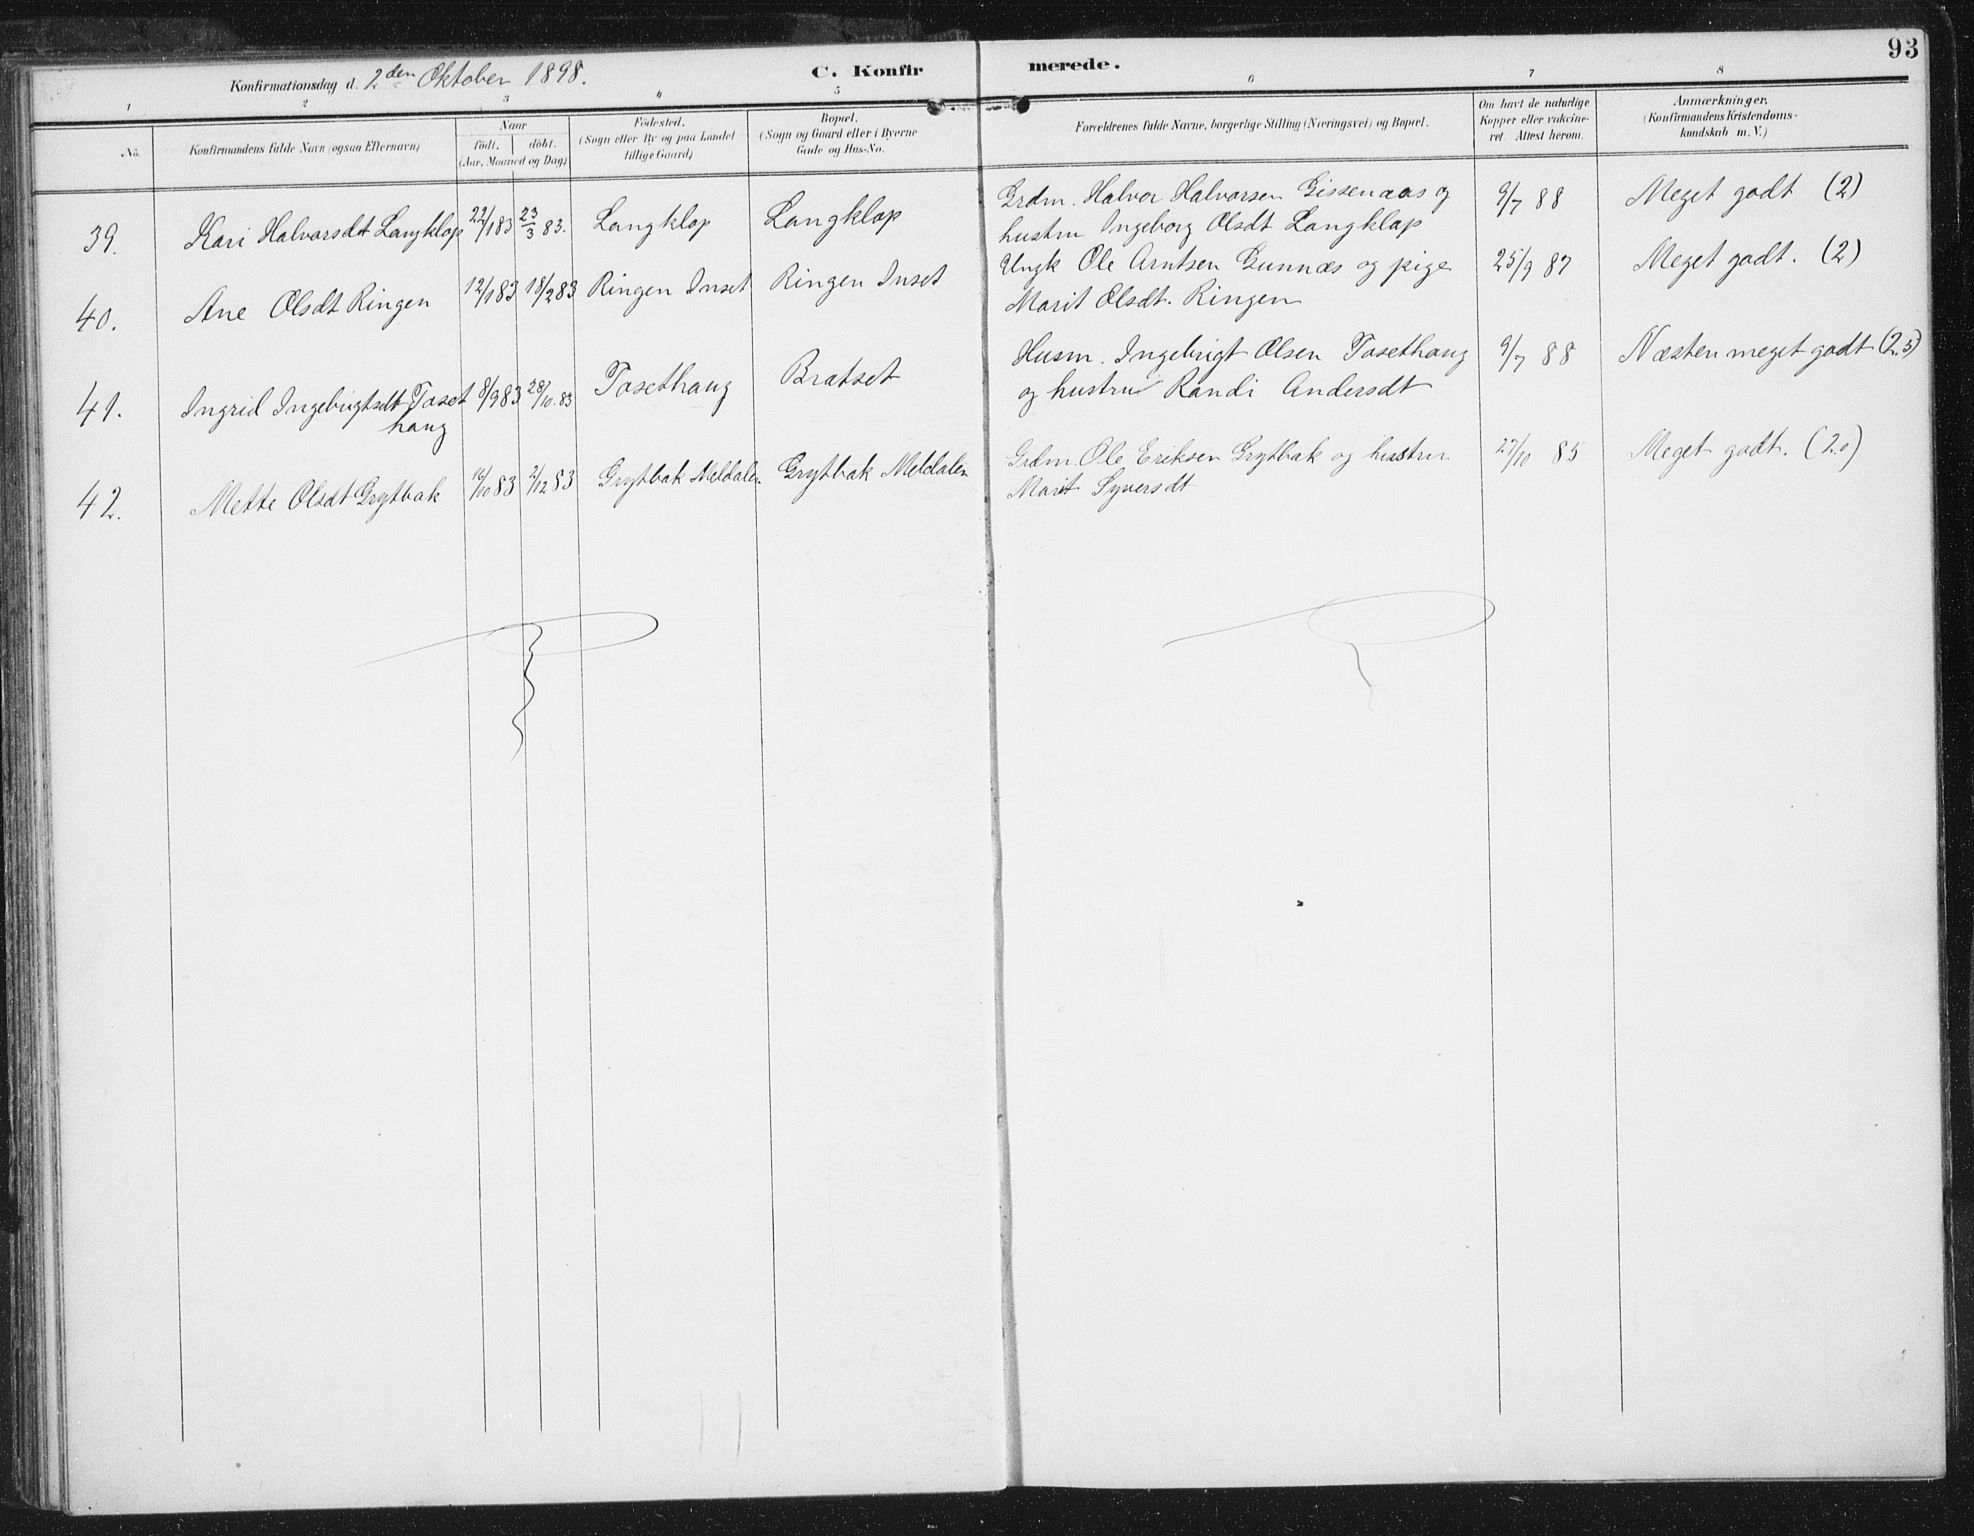 93
Konfirmationsdag d. 2den Oktober 1898.
C. Konfirmerede.
1 2 3 4 5 6 7 8
No.
Konfirmandens fulde Navn (ogsaa Efternavn)
Naar
födt. döbt.
(Aar, Maaned og Dag)
Födested.
(Sogn eller By og paa Landet
tillige Gaard)
Bopæl.
(Sogn og Gaard eller i Byerne
Gade og Hus-No.
Forældrenes fulde Navne, borgerlige Stilling (Næringsvei) og Bopæl.
Om havt de naturlige
Kopper eller vaccine-
ret. Attest herom.
Anmærkninger,
(Konfirmandens Kristendoms-
kundskab m. V.)
39. Kari Halvorsdt Langklop 22/1 83 23/3 83. Langklop Langklop
Grdm. Halvor Halvorsen Gissenaas og
hustru Ingeborg Olsdt Langklop
9/7 88 Meget godt (2)
40. Ane Olsdt Ringen 12/1 83 18/2 83 Ringen Inset Ringen Inset
Ungk Ole Arntsen Gunnæs og pige
Marit Olsdt. Ringen
25/9 87 Meget godt. (2)
41. Ingrid Ingebrigtsdt Toset
haug
8/9 83 28/10. 83 Tosethaug Bratset
Husm. Ingebrigt Olsen Tosethaug
og hustru Randi Andersdt
9/7 88 Næsten meget godt (2.5)
42. Mette Olsdt Grytbak /10 83 2/12 83 Grytbak Meldalen. Grytbak Meldalen
Grdm. Ole Eriksen Grytbak og hustru
Marit Syversdt
27/10 85 Meget godt. (2.0)